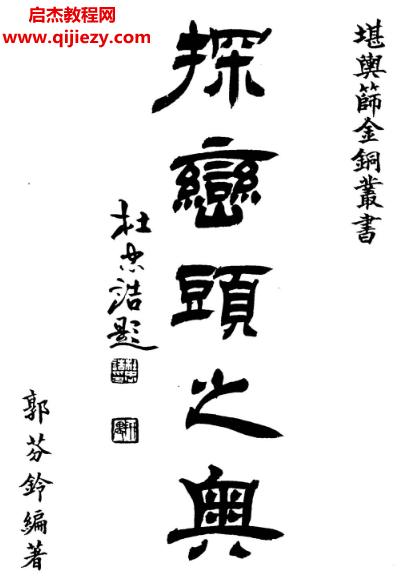 启杰教程网
www.qijiezy.com
堪輿篩金銅叢書
探巒頭之奧
杜忠誥題
郭芬鈴編著